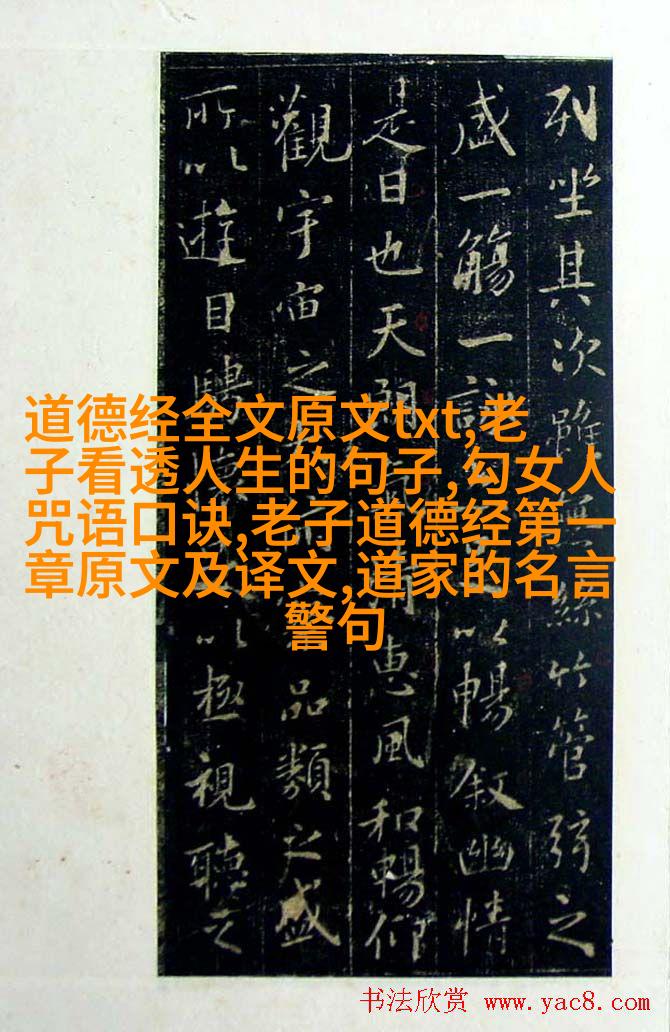 列坐其次雖無絲竹管弦之
盛一觴一詠以暢叙幽情
是日也天朗惠風和暢仰
觀宇宙之品類之盛
所以遊目騁以極視聽之
道德经全文原文txt,老
子看透人生的句子,勾女人
咒语口诀,老子道德经第一
章原文及译文,道家的名言
警句
书法欣赏 www.yac8.com